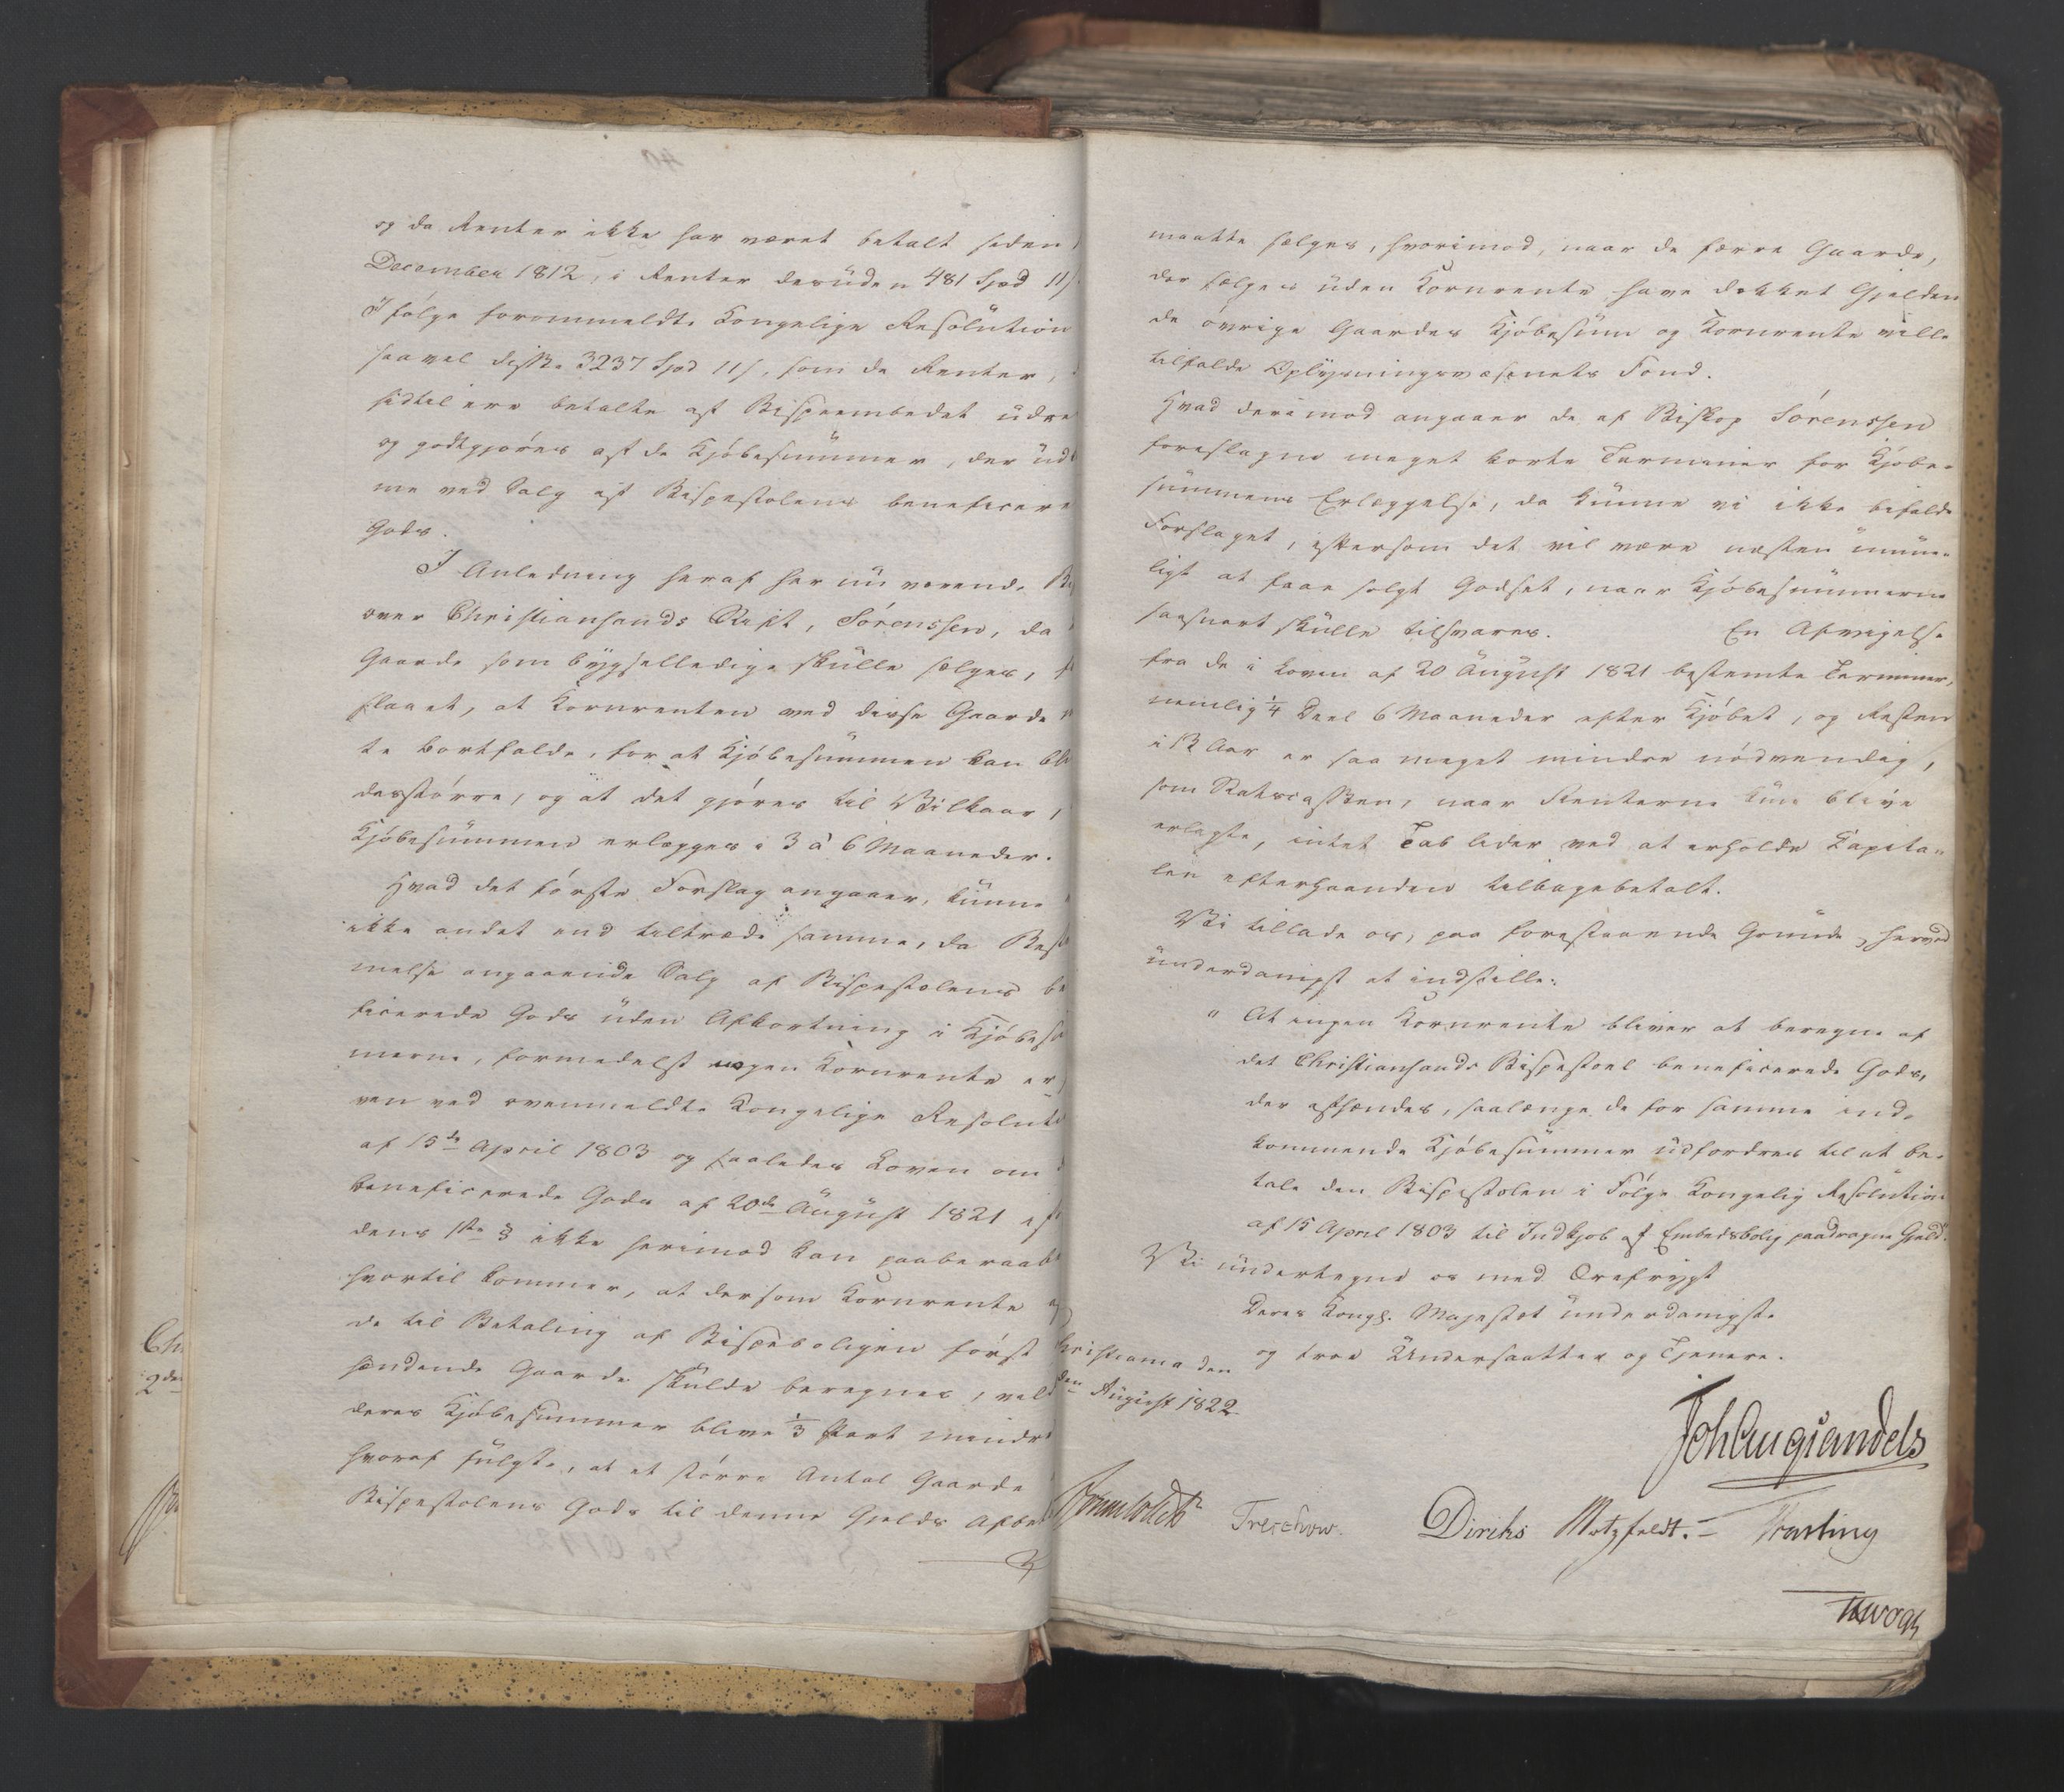 og da Renter ikke har været betalt siden
December 1812, i Renter desuden 481 Spd 11 s
Ifølge forommeldte Kongelige Resolution
saavel disse 3237 Spd 11 s, som de Renter,
hidtil ere betalte af Bispeembedet udre
og godtgjøres af de Kjøbesummer, der ud
me ved Salg af Bispestolens beneficere
Gods.
I Anledning heraf har nu værende Bi
over Christiansands Stift, Sørenssen, da
Gaarde som bygselledige skulle sælges, f
slaaet, at Kornrenten ved disse Gaarde
te bortfalde, for at Kjøbesummen kan bli
desstørre, og at det gjøres til Vilkaar,
Kjøbesummen erlægges i 3 à 6 Maaneder.
Hvad det første Forslag angaaer, kunne
ikke andet end tiltræde samme, da Best
melse angaaende Salg af Bispestolens be
ficerede Gods uden Afkortning i Kjøbesu
merne, formedelst nogen Kornrente er
ven ved ovenmeldte Kongelige Resoluti
af 15de April 1803 og saaledes Loven om d
beneficerede Gods af 20de August 1821 eft
dens 1ste § ikke herimod kan paaberaabe
hvortil kommer, at dersom Kornrente af
de til Betaling af Bispeboligen først
hændende Gaarde skulde beregnes, vild
deres Kjøbesummer blive 1/3 Part mindre
hvoraf fulgte, at et større Antal Gaarde
Bispestolens Gods til denne Gjelds Afbe
maatte sælges, hvorimod, naar de færre Gaarde,
der sælges uden Kornrente have dækket Gjelden
de øvrige Gaardes Kjøbesum og Kornrente ville
tilfalde Oplysningsvæsenets Fond.
Hvad derimod angaaer de af Biskop Sørenssen
foreslagne meget korte Terminer for Kjøbe-
summens Erlæggelse, da kunne vi ikke bifalde
Forslaget, eftersom det vil være næsten umue-
ligt at faae solgt Godset, naar Kjøbesummerne
saasnart skulle tilsvares. En Afvigelse
fra de i Loven af 20 August 1821 bestemte Terminer,
nemlig 1/4 Deel 6 Maaneder efter Kjøbet, og Resten
i 12 Aar er saa meget mindre nødvendig,
som Statscassen, naar Renterne kun blive
erlagte, intet Tab lider ved at erholde Capita-
len efterhaanden tilbagebetalt.
Vi tillade os, paa forestaaende Grunde, herved
underdanigst at indstille:
" At ingen Kornrente bliver at beregne af
det Christiansands Bispestoel beneficerede Gods,
der afhændes, saalænge de for samme ind-
kommende Kjøbesummer udfordres til at be-
tale den Bispestolen i Følge Kongelig Resolution
af 15 April 1803 til Indkjøb af Embedsbolig paadragne Gjeld."
Vi undertegne os med Ærefrygt
Deres Kongl. Majestæt underdanigste
og troe Undersaatter og Tjenere.
hristiania den
den August 1822
Joh Aug Sandels
Sommerhielm
Treschow. Diriks Motzfeldt. Fasting
Vogt
Ch
2den